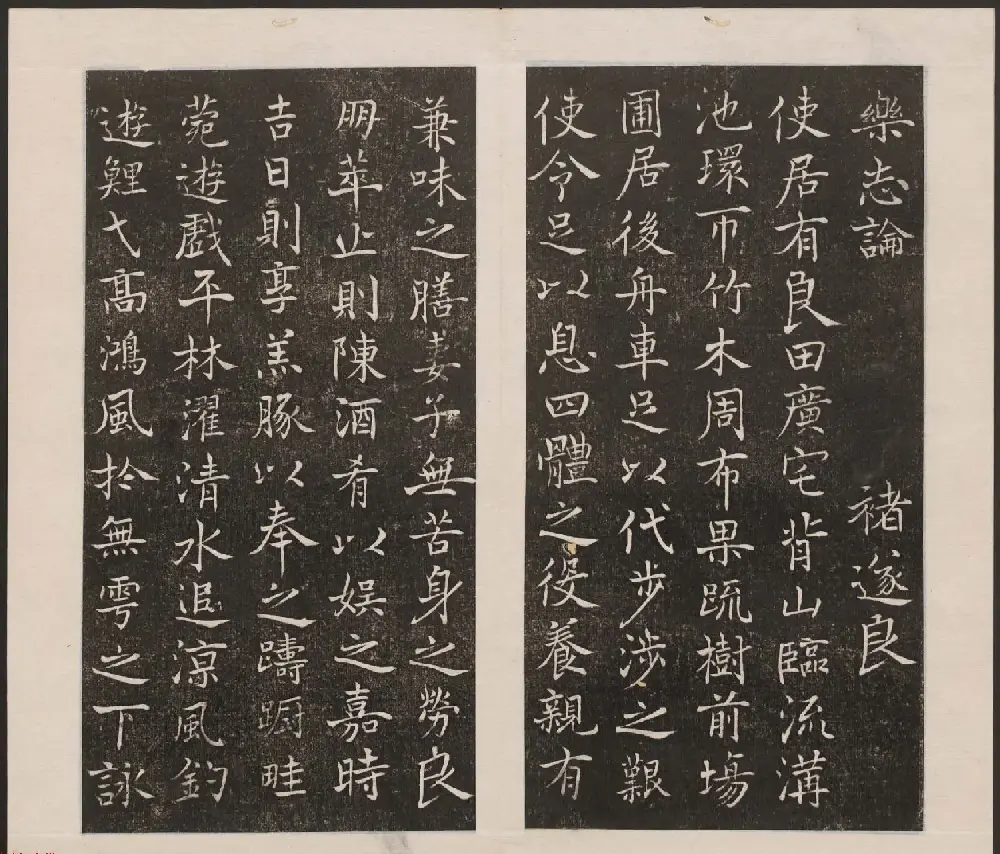 樂志論 褚遂良
使居有良田廣宅背山臨流溝
池環帀竹木周布果蔬樹前場
圃居後舟車足以代步涉之艱
使令足以息四體之役養親有
兼味之膳妻子無苦身之勞良
朋萃止則陳酒肴以娛之嘉時
吉日則亨羔豚以奉之躊躕畦
菀遊戲平林濯清水追涼風釣
遊鯉弋高鴻風於無雩之下詠